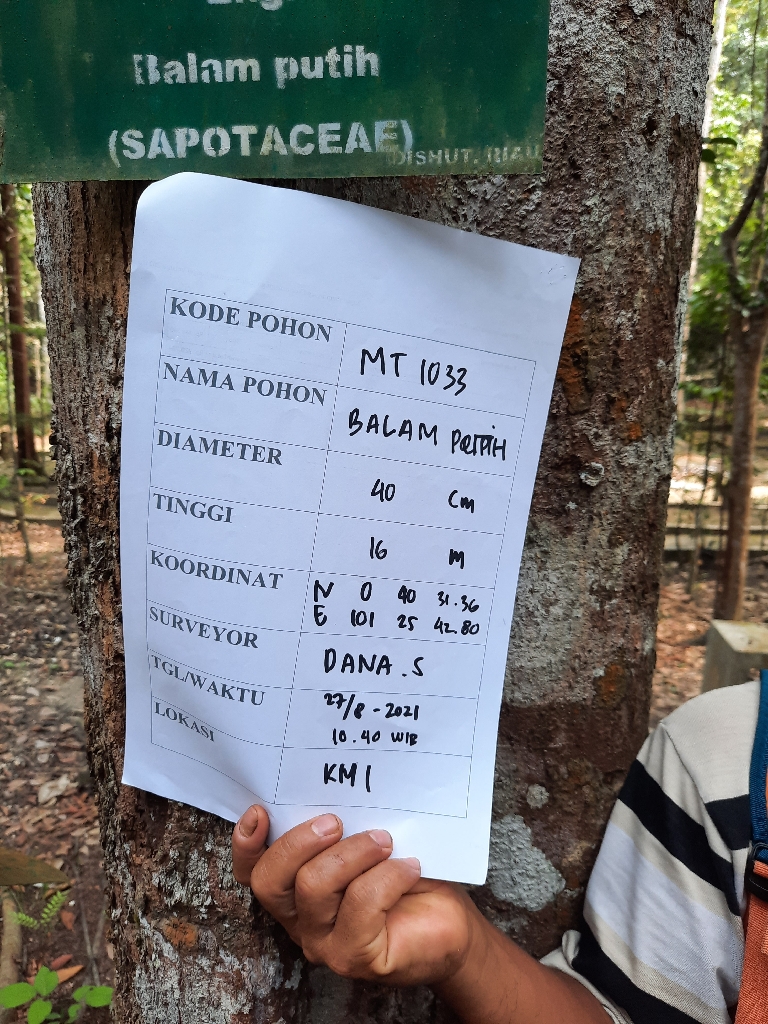 Balam putih
(SAPOTACEAE)
DISHUT. RIAU
KODE POHON MT 1033
NAMA POHON BALAM PUTIH
DIAMETER 40 cm
TINGGI 16 m
KOORDINAT N 0 40 31.36
E 101 25 42.80
SURVEYOR DANA.S
TGL/WAKTU 27/8-2021
10.40 WIB
LOKASI KM 1